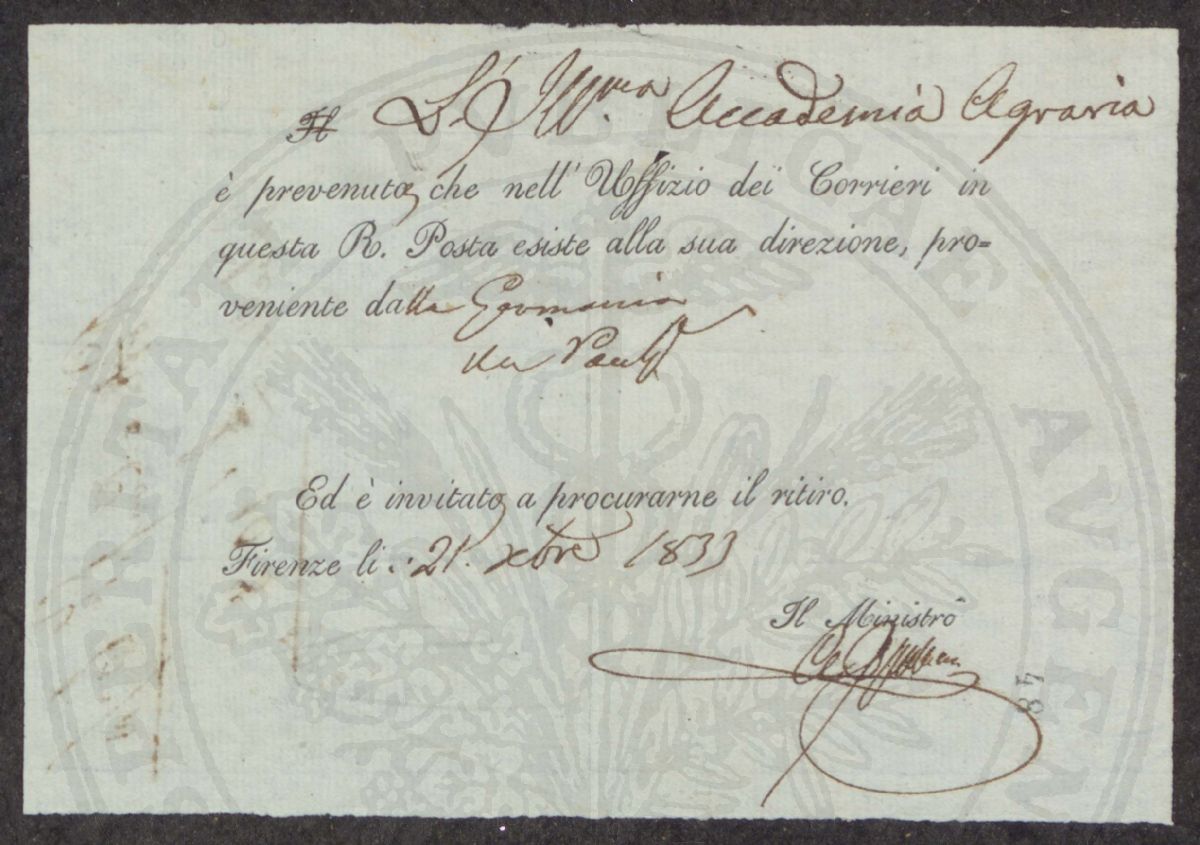 Il L' Ill.ma Accademia Agraria
è prevenuta, che nell' Uffizio dei Corrieri in
questa R. Posta esiste alla sua direzione, pro=
veniente dalla Germania
un
Ed è invitata a procurarne il ritiro.
Firenze li : 21. Xbre 1833
Il Ministro
48
PROSPERITATI PUBLICAE AUGENDAE